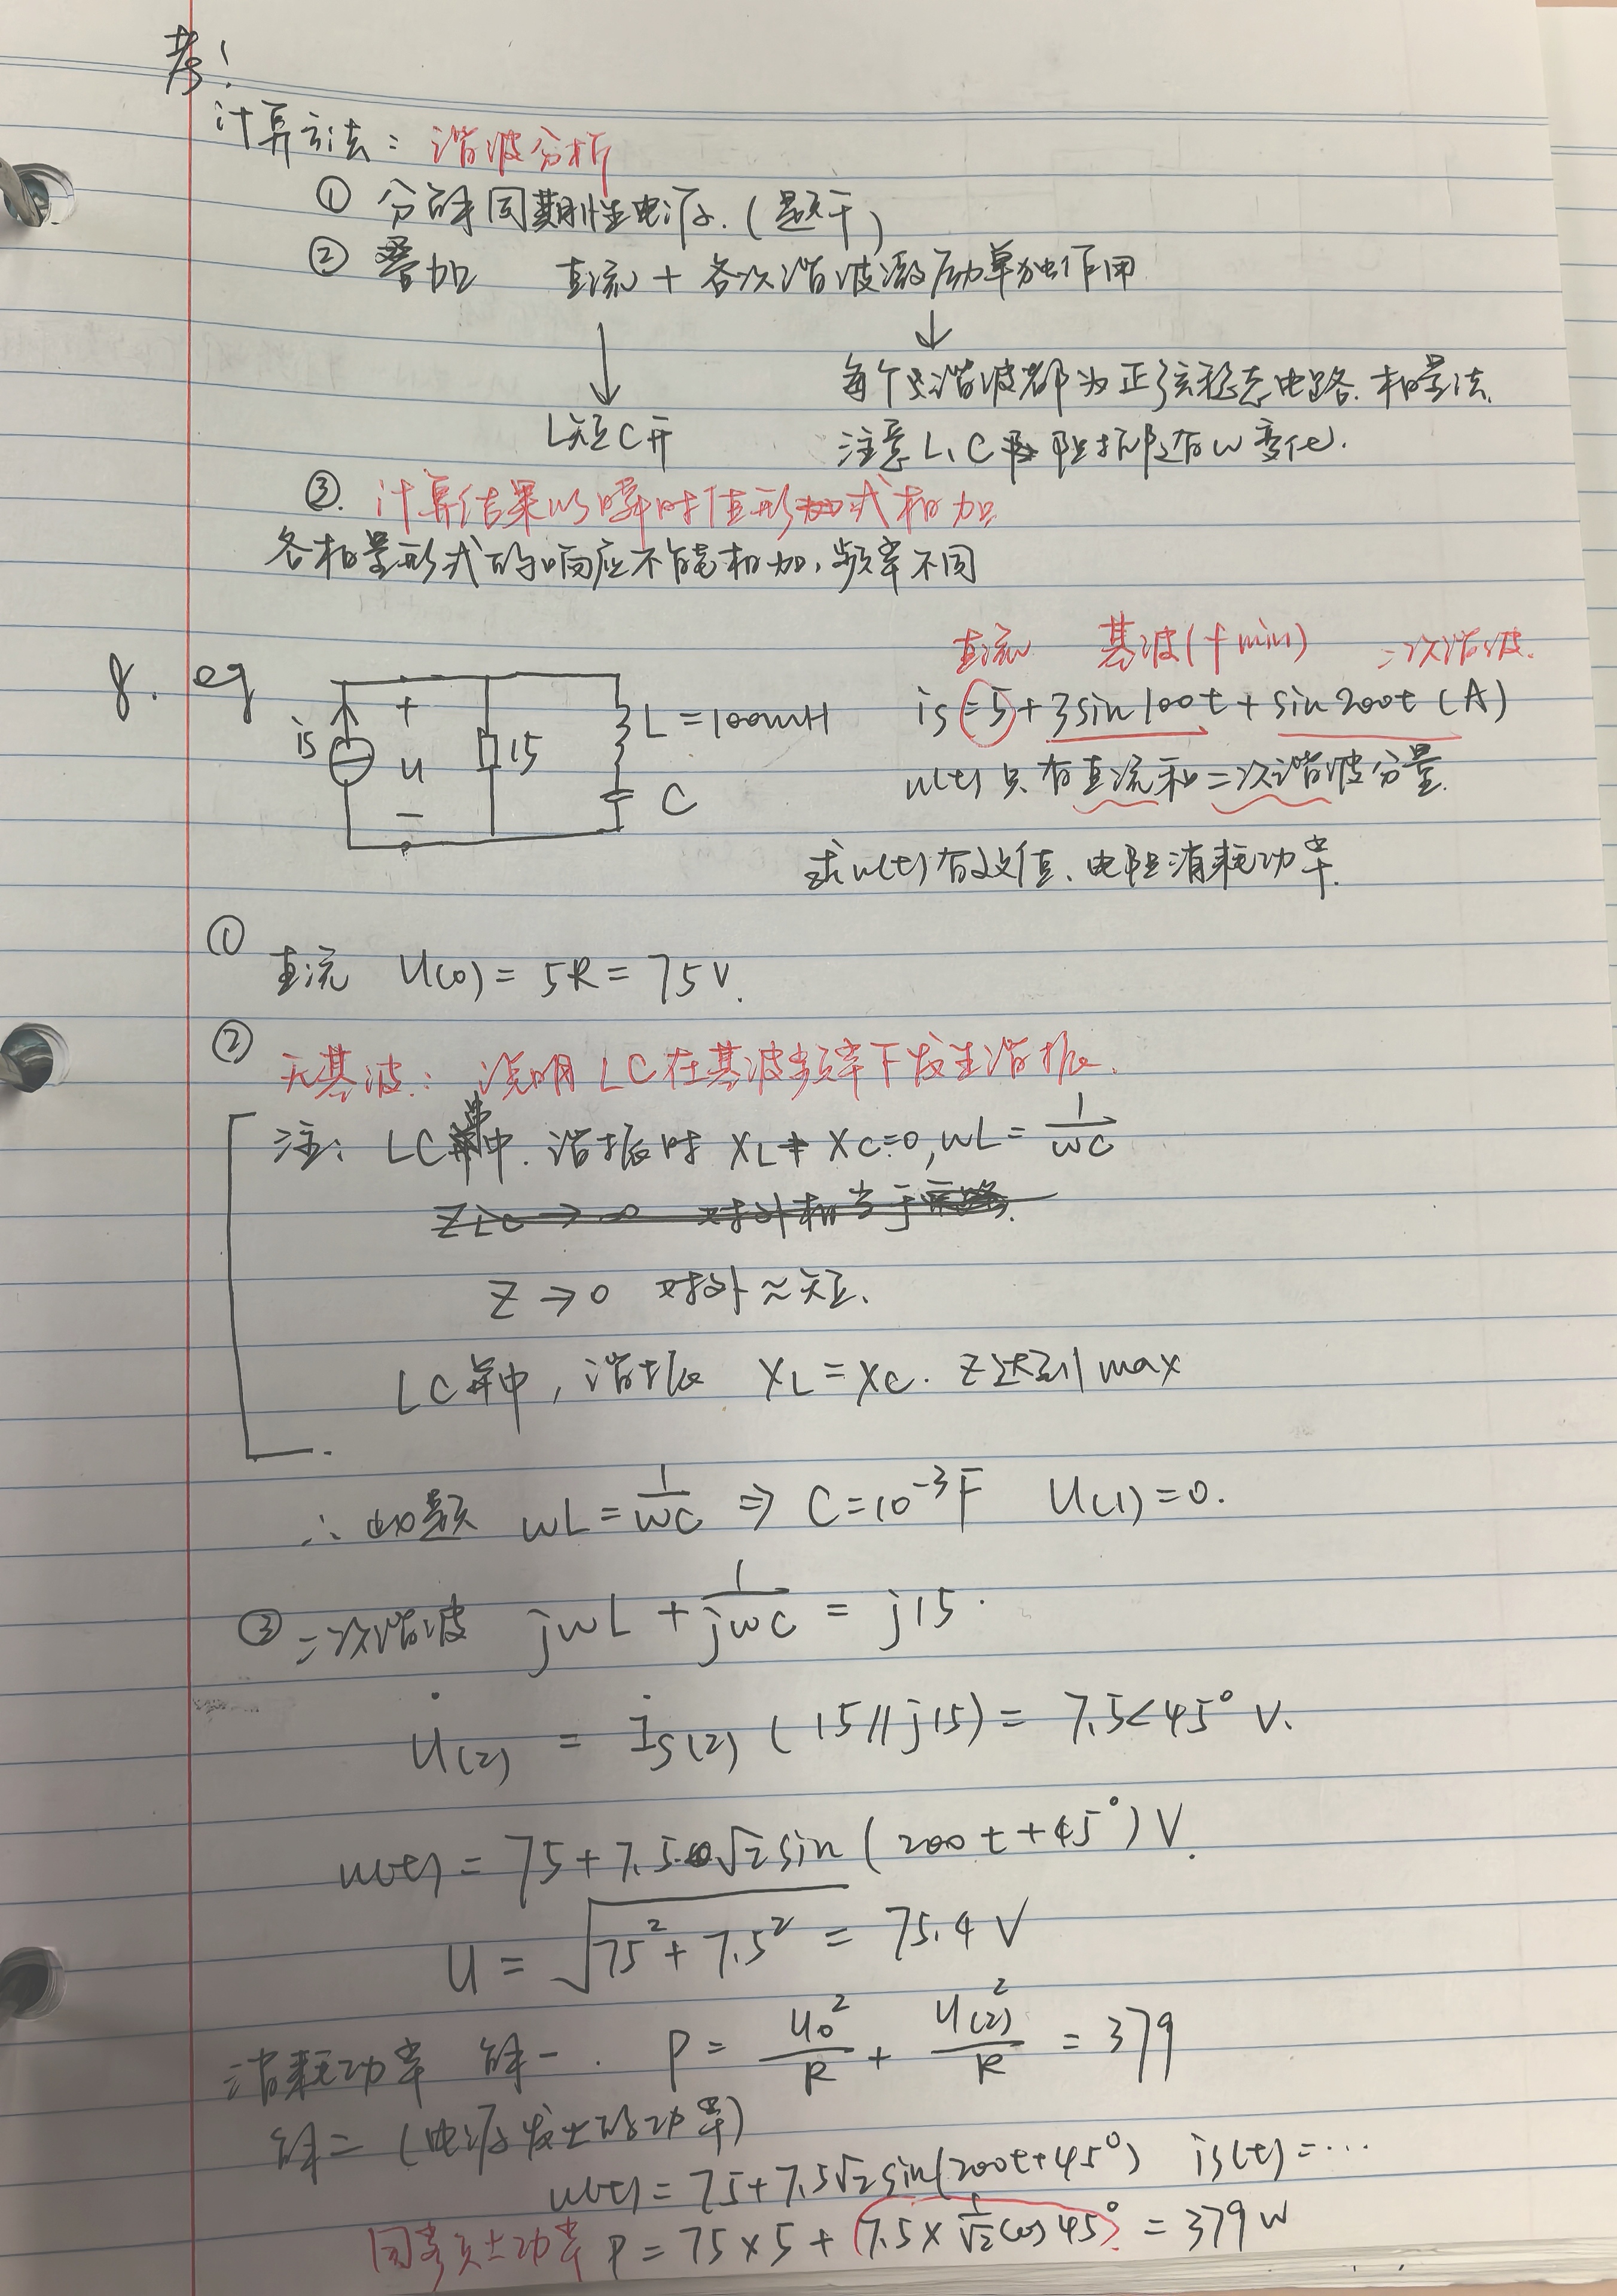 考!
计算方法：谐波分析
① 分解周期性电源.(题干)
② 叠加 直流 + 各次谐波激励单独作用
L短C开
每个谐波都为正弦稳态电路.相量法.
注意L、C 阻抗随ω变化.
③. 计算结果以瞬时值形式相加
各相量形式的响应不能相加,频率不同
8. eg
直流 基波(f min) 二次谐波.
is = 5 + 3sin100t + sin200t (A)
is + u - 15 L=100mH C
u(t)只有直流和二次谐波分量.
求u(t)有效值、电阻消耗功率.
①
直流 U(0) = 5R = 75V.
②
无基波: 说明LC在基波频率下发生谐振.
注: LC串中.谐振时 XL+XC=0, ωL=1/ωC
Z→0 对外≈短.
LC并中, 谐振 XL=XC. Z达到max
∴ 此题 ωL=1/ωC ⇒ C=10⁻³F U(1)=0.
③ 二次谐波 jωL + 1/jωC = j15.
U̇(2) = İs(2) (15//j15) = 7.5∠45° V.
u(t) = 75+7.5√2sin(200t+45°)V.
U = √(75²+7.5²) = 75.4V
消耗功率 解一. P = U₀²/R + U(2)²/R = 379
解二 (电源发出的功率)
u(t) = 75+7.5√2sin(200t+45°) is(t)=...
P = 75×5 + (7.5×1/√2 cos45°) = 379W